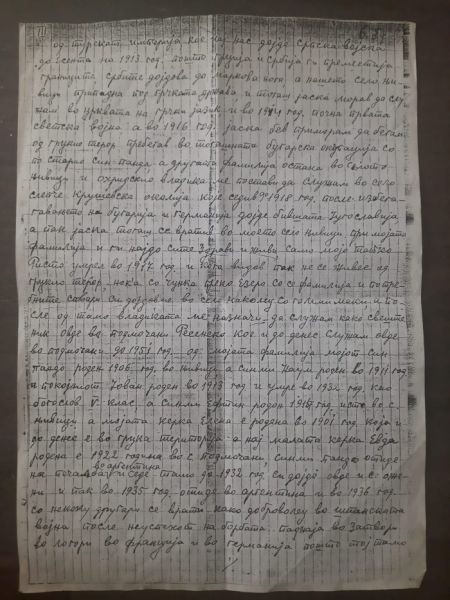 III
од турската империја кое кај нас дојде српска војска
до есента на 1913 год. пошто Грција и Србија ги преместија
границите србите дојдова до Маркова нога, а нашето село Ни-
вици припадна под грчката држава и тогаш јаска морав да слу-
жам во црквата на грчки јазик и во 1914 год. почна првата
светска војна а во 1916 год. јаска бев приморан да бегам
од грчкио терор пребегав во тогашната бугарска окупација со
по старио син Пандо, а другата фамилија остана во селото
Нивици и охридскио владика ме постави да служам во село
Слепче Крушевска околија каде седив до 1918 год. после избега-
гавањето на бугарија и германија дојде бившата Југославија
а пак јаска тогаш се вратив во моето село Нивици при мојата
фамилија и ги најдо сите здрави и живи, само мојо татко
Ристо умрел во 1917 год. и кога видов, пак не се живее од
грчкио терор, ноќа со чунка преко езеро со се фамилија и потре-
бните совари си дојдовме во село Наколец со големи меки, и по-
сле од тамо владиката ме назначи да служам како свеште-
ник овде во Подмочани Ресенско кое и до денес служам овде
во Подмочани до 1951 год. од мојата фамилија мојот син
Пандо роден 1906 год. во Нивици, а син ми Наум роден во 1911 год
а покојниот Јован роден во 1913 год и умре во 1932 год. као
богослов V клас, а син ми роден 1919 год. исто во с.
Нивици а мојата ќерка Елена е родена во 1901 год. која и
до денес е во грчка територија - а нај малата ќерка Евда
родена е 1922 година во с. Подмочани. син ми Пандо отиде
во аргентина
на печалба и седе тамо до 1932 год. си дојде овде и се оже-
ни и пак во 1935 год. отиде во аргентина и во 1936 год.
со неколку другари се врати како доброволец во шпанската
војна после неуспехот на борбата, паднаја во затвори
во логори во франција и во германија пошто тој тамо